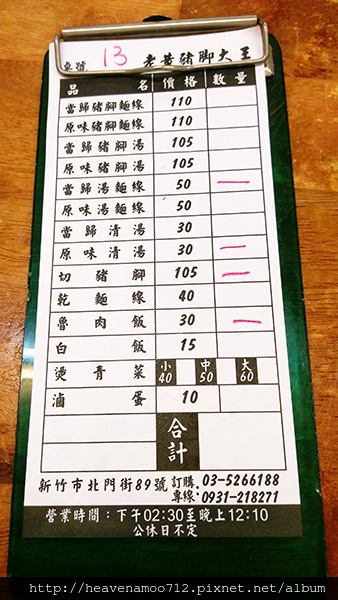 桌號 13 老黃豬腳大王
品名 價格 數量
當歸豬腳麵線 110
原味豬腳麵線 110
當歸豬腳湯 105
原味豬腳湯 105
當歸湯麵線 50 一
原味湯麵線 50
當歸清湯 30
原味清湯 30 一
切豬腳 105 一
乾麵線 40
魯肉飯 30 一
白飯 15
燙青菜 小40 中50 大60
滷蛋 10
合計
新竹市北門街89號 訂購專線：03-5266188
0931-218271
營業時間：下午02:30至晚上12:10
公休日不定
http://heavenamoo712.pixnet.net/album